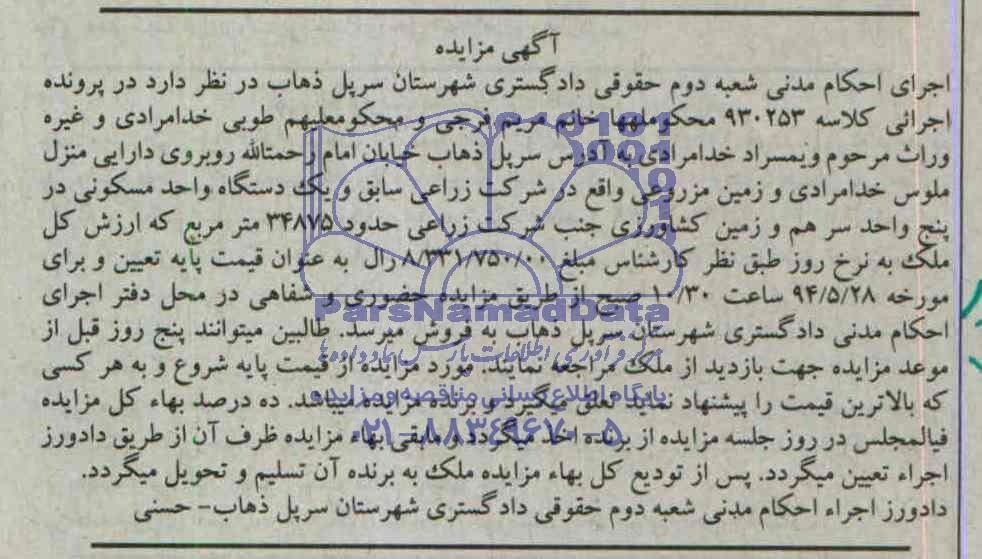 آگهی مزایده
اجرای احکام مدنی شعبه دوم حقوقی دادگستری شهرستان سرپل ذهاب در نظر دارد در پرونده
اجرائی کلاسه ۹۳۰۲۵۳ محکوم‌لهها خانم مریم فرجی و محکومعلیهم طوبی خدامرادی و غیره
وراث مرحوم ویمسراد خدامرادی به آدرس سرپل ذهاب خیابان امام رحمتالله روبروی دارایی منزل
ملوس خدامرادی و زمین مزروعی واقع در شرکت زراعی سابق و یک دستگاه واحد مسکونی در
پنج واحد سر هم و زمین کشاورزی جنب شرکت زراعی حدود ۳۴۸۷۵ متر مربع که ارزش کل
ملک به نرخ روز طبق نظر کارشناس مبلغ ۸/۳۳۱/۷۵۰/۰۰۰ رال به عنوان قیمت پایه تعیین و برای
مورخه ۹۴/۵/۲۸ ساعت ۱۰/۳۰ صبح از طریق مزایده حضوری و شفاهی در محل دفتر اجرای
احکام مدنی دادگستری شهرستان سرپل ذهاب به فروش میرسد. طالبین میتوانند پنج روز قبل از
موعد مزایده جهت بازدید از ملک مراجعه نمایند. مورد مزایده از قیمت پایه شروع و به هر کسی
که بالاترین قیمت را پیشنهاد نماید تعلق میگیرد و برنده مزایده میباشد. ده درصد بهاء کل مزایده
فیالمجلس در روز جلسه مزایده از برنده اخذ میگردد و مابقی بهاء مزایده ظرف آن از طریق دادورز
اجراء تعیین میگردد. پس از تودیع کل بهاء مزایده ملک به برنده آن تسلیم و تحویل میگردد.
دادورز اجراء احکام مدنی شعبه دوم حقوقی دادگستری شهرستان سرپل ذهاب- حسنی
ParsNamadData
مرکز فرآوری اطلاعات پارس نماد داده ها
پایگاه اطلاع رسانی مناقصه و مزایده
۰۲۱-۸۸۳۴۹۶۷۰-۵